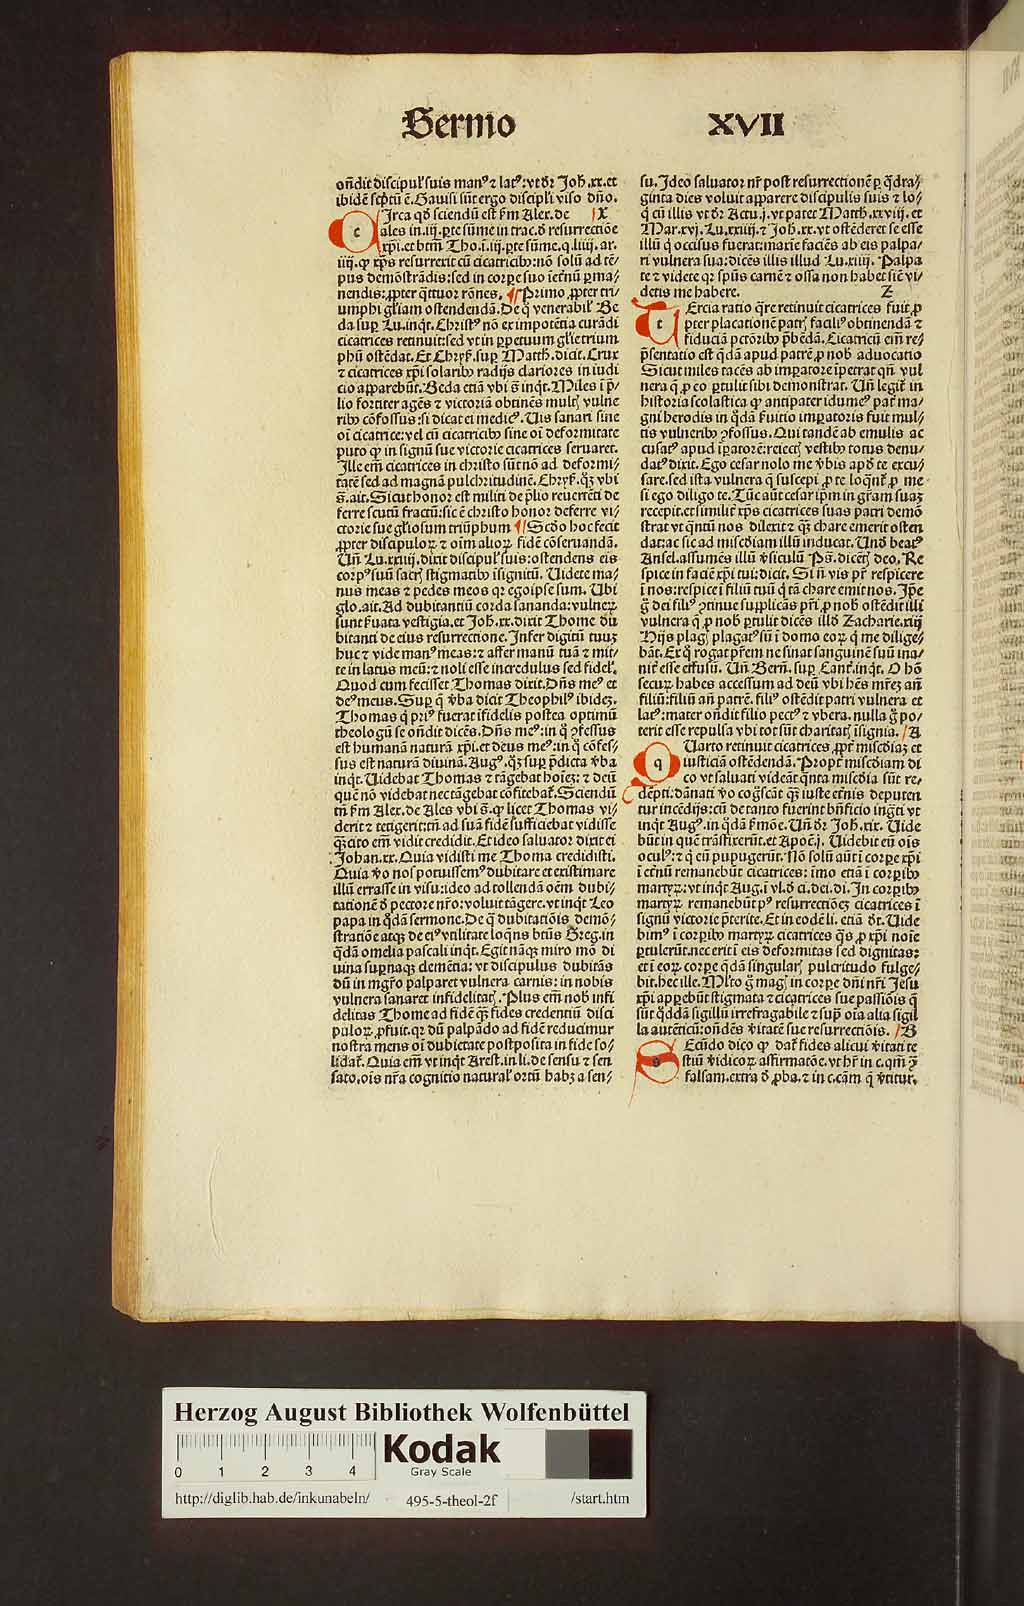 Sermo XVII
ondit discipul' suis man⁹ ⁊ lat⁹: vt dr̄ Joh̄.xx. et
ibidē sc̄ptū ē. Gavisi sūt ergo discipl'i viso dn̄o.
Irca qd̄ sciendū est s̄m Alex. de X
ales in.iij. ꝑte sūme in trac. d̄ resurrectiōe
xp̄i. et btm̄ Tho. ī.iij. ꝑte sūme. q. liiij. ar.
iiij. ꝙ xp̄s resurrexit cū cicatricibꝰ: nō solū ad tē-
pus demōstrādis: sed in corꝑe suo īet̄nū ꝑma-
nendis: ꝓpter q̄ttuor rōnes. ¶ Primo ꝓpter tri-
umphi gl'iam ostendendā. De q̄ venerabil' Be
da suꝑ Lu. inq̄t. Christ⁹ nō ex impotētia curādi
cicatrices retinuit: sed vt in ꝑpetuum gl'ie trium
phū ostēdat. Et Chrys. suꝑ Matth. dicit. Crux
⁊ cicatrices xp̄i solaribꝰ radijs clariores in iudi
cio apparebūt. Beda etiā vbi s̄ inq̄t. Miles ī p̄-
lio fortiter agēs ⁊ victoriā obtinēs mult' vulne
ribꝰ cōfossus: si dicat ei medic⁹. Uis sanari sine
oī cicatrice: vel cū cicatricibꝰ sine oī deformitate
puto ꝙ in signū sue victorie cicatrices servaret.
Ille em̄ cicatrices in christo sūt nō ad deformi-
tatē sed ad magnā pulchritudinē. Chrys. qꝫ vbi
s̄. ait. Sicut honor est militi de p̄lio reuertēti de
ferre scutū fractū: sic ē christo honor deferre vi-
ctorie sue gl'iosum triūphum ¶ Scd̄o hoc fecit
ꝓpter discipuloꝝ ⁊ oīm alioꝝ fidē cōseruandā.
Un̄ Lu.xxiiij. dixit discipul' suis: ostendens eis
corp⁹ suū sacr' stigmatibꝰ īsignitū. Uidete ma-
nus meas ⁊ pedes meos qꝛ ego ipse sum. Ubi
glo. ait. Ad dubitantiū corda sananda: vulneꝝ
sunt ẜuata vestigia. et Joh̄.xx. dixit Thome du
bitanti de eius resurrectione. Infer digitū tuuꝫ
huc ⁊ vide man⁹ meas: ⁊ affer manū tuā ⁊ mit-
te in latus meū: ⁊ noli esse incredulus sed fidel'.
Quod cum fecisset Thomas dixit. Dn̄s me⁹ et
de⁹ meus. Suꝑ q̄ v̄ba dicit Theophil⁹ ibideꝫ.
Thomas q̄ pri⁹ fuerat īfidelis postea optimū
theologū se ondit dicēs. Dn̄s me⁹: in q̊ ꝯfessus
est humanā naturā xp̄i. et deus me⁹: in q̊ cōfes-
sus est naturā diuinā. Aug⁹. qꝫ suꝑ p̄dicta v̄ba
inq̄t. Uidebat Thomas ⁊ tāgebat hoīeꝫ: ⁊ deū
quē nō videbat nec tāgebat cōfitebat. Sciendū
tn̄ s̄m Alex. de Ales vbi s̄. ꝙ licet Thomas vi-
derit ⁊ tetigerit: tn̄ ad suā fidē sufficiebat vidisse
qꝛ cito em̄ vidit credidit. Et ideo saluator dixit ei
Johan.xx. Quia vidisti me Thoma credidisti.
Quia v̊o nos potuissem⁹ dubitare et existimare
illū errasse in visu: ideo ad tollendā oēm dubi-
tationē d̄ pectore nr̄o: voluit tāgere. vt inq̄t Leo
papa in q̊dā sermone. De q̄ dubitatiōis demō-
stratiōe atqꝫ de ei⁹ vtilitate loq̄ns btūs Greg. in
q̄dā omelia pascali inq̄t. Egit nāqꝫ miro mō di
uina suꝑnaqꝫ clemētia: vt discipulus dubitās
dū in mgr̄o palparet vulnera carnis: in nobis
vulnera sanaret infidelitat'. Plus em̄ nob' infi
delitas Thome ad fidē qꝫ fides credentiū disci
puloꝝ ꝓfuit. qꝛ dū palpādo ad fidē reducimur
nostra mens oī dubietate postposita in fide so-
lidat'. Quia em̄ vt inq̄t Arest. in li. de sensu ⁊ sen
sato. ois nr̄a cognitio natural' ortū habꝫ a sen-
su. Ideo saluator nr̄ post resurrectionē ꝑ q̄dra-
ginta dies voluit apparere discipulis suis ⁊ lo-
q̄ cū illis vt dr̄ Actu.j. vt patet Matth.xxviij. et
Mar.xvj. Lu.xxiiij. ⁊ Joh̄.xx. vt ostēderet se esse
illū q̄ occisus fuerat: maxīe faciēs ab eis palpa-
ri vulnera sua: dicēs illis illud Lu.xxiiij. Palpa
te ⁊ videte qꝛ spūs carnē ⁊ ossa non habet sic̄ vi-
detis me habere. Z
Ercia ratio q̄re retinuit cicatrices fuit ꝓ
pter placationē patr' facili⁹ obtinendā ⁊
fiduciā pctōribꝰ p̄bēdā. Cicatricū em̄ re-
p̄sentatio est q̄dā apud patrē ꝓ nob' aduocatio
Sicut miles tacēs ab imꝑatore īpetrat qn̄ vul
nera q̄ ꝓ eo ꝑtulit sibi demonstrat. Un̄ legit' in
historia scolastica ꝙ antipater idume⁹ pat' ma-
gni herodis in q̊dā ẜuitio imꝑatoris fuit mul-
tis vulneribꝰ ꝯfossus. Qui tandē ab emulis ac
cusat⁹ apud īꝑatorē: reiect' vestibꝰ totus denu-
dat⁹ dixit. Ego cesar nolo me v̄bis apd̄ te excu-
sare. sed ista vulnera q̄ suscepi ꝓ te loq̄nt' ꝓ me
si ego diligo te. Tūc aūt cesar ip̄m in gr̄am suaꝫ
recepit. et simili⁊ xp̄s cicatrices suas patri demō
strat vt q̄ntū nos dilexit ⁊ qꝫ chare emerit osten
dat: ac sic ad misc̄diam illū inducat. Und̄ beat⁹
Ansel. assumēs illū v̄siculū Ps̄. dicēt' deo. Re
spice in faciē xp̄i tui: dicit. Si n̄ vis pr̄ respicere
ī nos: respice ī filiū tuū q̄ tā chare emit nos. Ip̄e
g̊ dei fili⁹ ꝯtinue supplicās pr̄i ꝓ nob' ostēdit illi
vulnera q̄ ꝓ nob' ꝑtulit dicēs illd̄ Zacharie.xiij
Hijs plag' plagat⁹ sū ī domo eoꝝ q̄ me dilige-
bāt. Ex q̊ rogat pr̄em ne sinat sanguinē suū ina-
nit' esse effusū. Un̄ Bern̄. suꝑ Cant'. inq̄t. O hō
secuꝝ habes accessum ad deū vbi hēs mr̄eꝫ an̄
filiū: filiū an̄ patrē. fili⁹ ostēdit patri vulnera et
lat⁹: mater ondit filio pect⁹ ⁊ vbera. nulla g̊ po-
terit esse repulsa vbi tot sūt charitat' īsignia. A
Uarto retinuit cicatrices ꝓpt' misc̄diaꝫ et
iusticiā ostēdendā. Propt' misc̄diam di
co vt saluati videāt q̄nta misc̄dia sūt re-
dēpti: dānati v̊o cog̊scāt qꝫ iuste et̄nis deputen
tur incēdijs: cū de tanto fuerint bn̄ficio ingr̄ti vt
inq̄t Aug⁹. in q̊dā ẜmōe. Un̄ dr̄ Joh̄.xix. Uide
būt in quē trāsfixerūt. et Apoc̄.j. Uidebit eū ois
ocul⁹: ⁊ q̄ eū pupugerūt. Nō solū aūt ī corꝑe xp̄i
ī et̄nū remanebūt cicatrices: īmo etiā ī corꝑibꝰ
martyꝝ: vt inq̄t Aug. ī vl. d̄ ci. dei. di. In corꝑibꝰ
martyꝝ remanebūt p⁹ resurrectiōeꝫ cicatrices ī
signū victorie p̄terite. Et in eodē li. etiā dr̄. Uide
bim⁹ ī corꝑibꝰ martyꝝ cicatrices q̄s ꝓ xp̄i noīe
ꝑtulerūt. nec erit ī eis deformitas sed dignitas:
et ī eoꝝ corꝑe q̄dā singular' pulcritudo fulge-
bit. hec ille. Mlto g̊ mag' in corꝑe dn̄i nr̄i Jesu
xp̄i apꝑebūt stigmata ⁊ cicatrices sue passiōis q̄
sūt q̊ddā sigillū irrefragabile ⁊ sup̄ oīa alia sigil
la autēticū: ondēs v̄itatē sue resurrectiōis. B
Ecūdo dico ꝙ dat' fides alicui v̄itati te
stiū v̄idicoꝝ affirmatōe. vt hr̄ in c. qm̄ ꝯ̄
falsam. extra d̄ ꝓba. ⁊ in c. cām q̄ v̄titur.
Herzog August Bibliothek Wolfenbüttel
0 1 2 3 4
Kodak
Gray Scale
http://diglib.hab.de/inkunabeln/ 495-5-theol-2f /start.htm